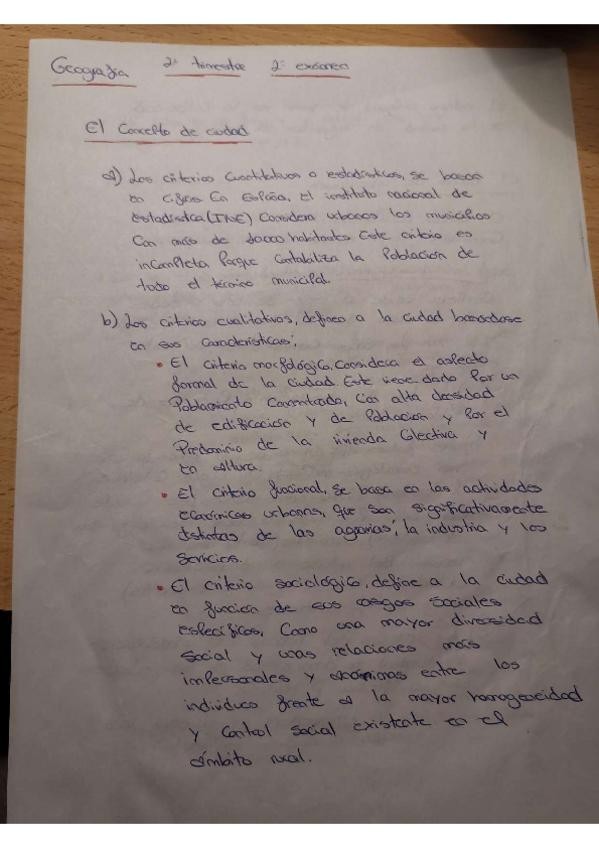 Geografía 2º trimestre 2º examen
El Concepto de ciudad
a) Los criterios cuantitativos o estadísticos, se basan
en cifras. En España, el instituto nacional de
estadística (INE) Considera urbanos los municipios
Con más de 10000 habitantes. Este criterio es
incompleto Porque contabiliza la Población de
todo el término municipal.
b) Los criterios cualitativos, definen a la ciudad basandose
en sus características;
• El criterio morfológico, considera el aspecto
formal de la ciudad. Este viene dado Por un
Poblamiento Concentrado, con alta densidad
de edificación y de Población y Por el
Predominio de la vivienda Colectiva y
en altura.
• El criterio funcional, se basa en las actividades
económicas urbanas, que son significativamente
distintas de las agrarias; la industria y los
Servicios.
• El criterio sociológico, define a la ciudad
en funcion de sus rasgos Sociales
específicos, Como una mayor diversidad
Social y unas relaciones más
impersonales y anónimas entre los
individuos frente a la mayor homogeneidad
y Control Social existente en el
ámbito rural.